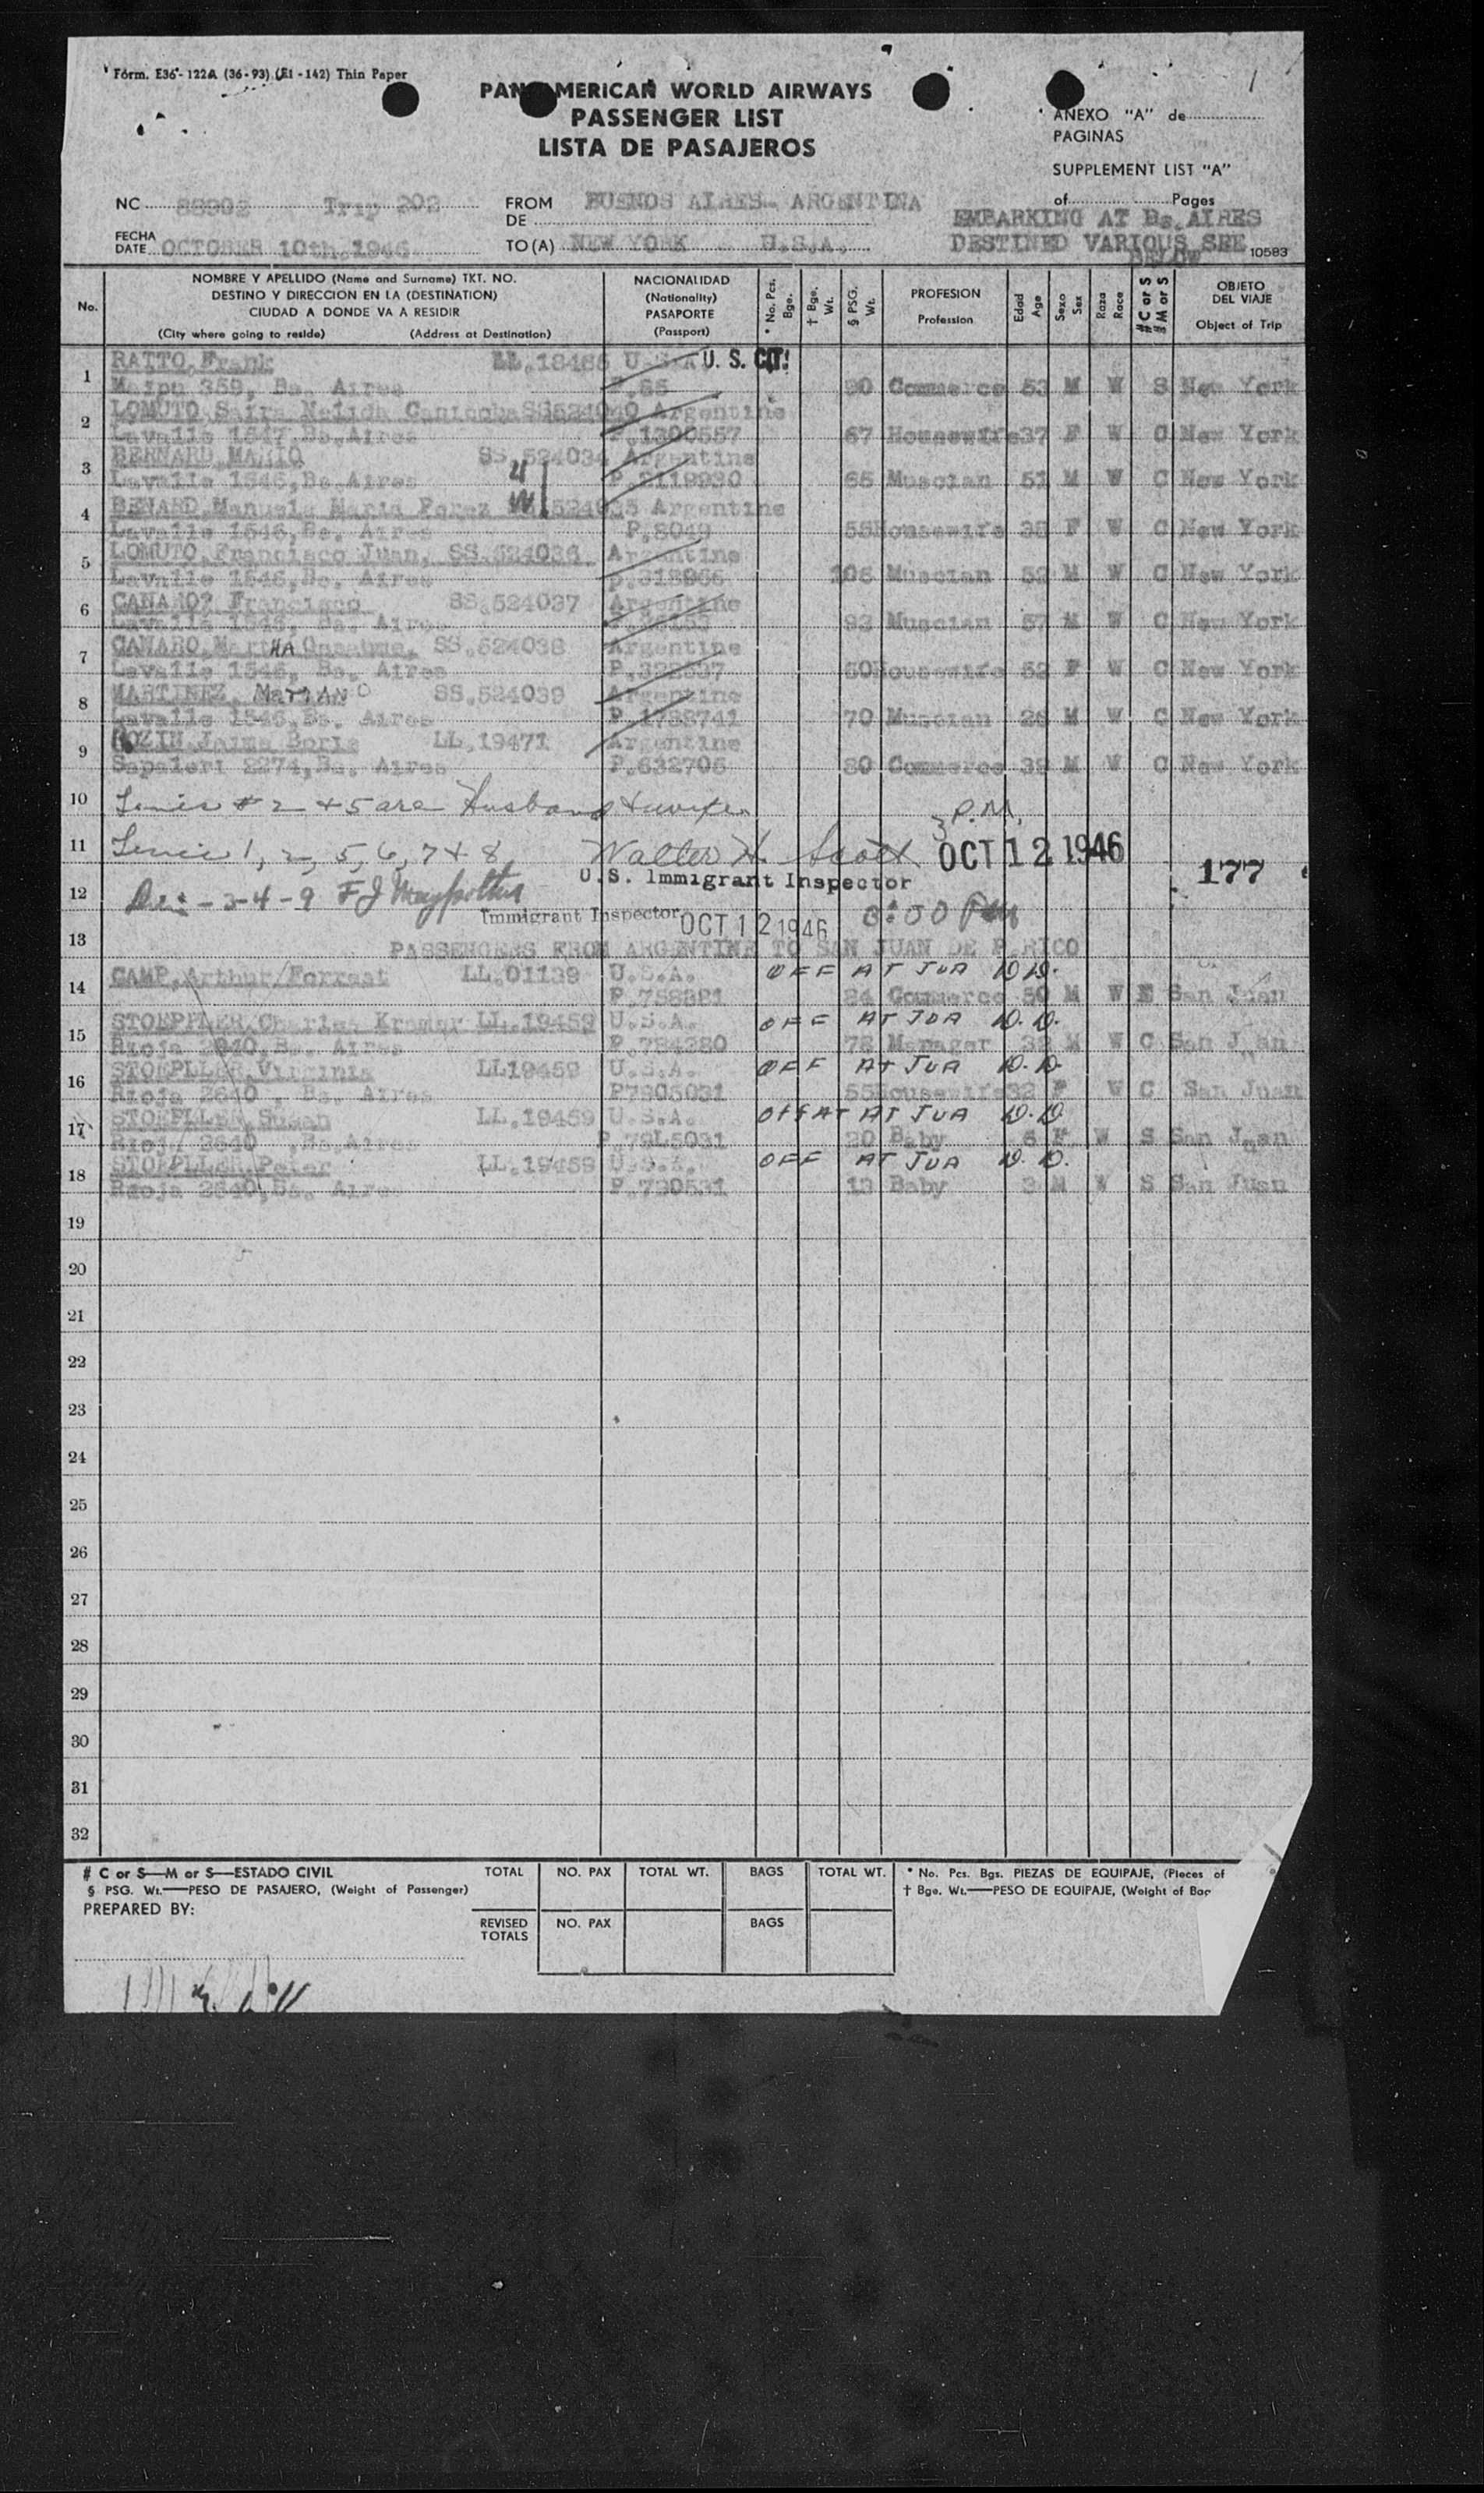 Form. E36-122A (36-93) (E1-142) Thin Paper
PAN AMERICAN WORLD AIRWAYS
PASSENGER LIST
LISTA DE PASAJEROS
ANEXO "A" de
PAGINAS
SUPPLEMENT LIST "A"
of Pages
NC 88902 Trip 202
FROM DE BUENOS AIRES- ARGENTINA
EMBARKING AT Bs.AIRES
FECHA DATE OCTOBER 10th.1946
TO (A) NEW YORK U.S.A.
DESTINED VARIOUS SEE
BELOW 10583
No.
NOMBRE Y APELLIDO (Name and Surname) TKT. NO.
DESTINO Y DIRECCION EN LA (DESTINATION)
CIUDAD A DONDE VA A RESIDIR
(City where going to reside) (Address at Destination)
NACIONALIDAD
(Nationality)
PASAPORTE
(Passport)
* No. Pcs. Bge.
† Bge. Wt.
§ PSG. Wt.
PROFESION
Profession
Edad Age
Sexo Sex
Raza Race
# C or S
# M or S
OBJETO
DEL VIAJE
Object of Trip
RATTO, Frank LL.18486 U.S.A. U. S. CIT!
1 Maipu 359, Bs. Aires P.65 90 Commerce 53 M W S New York
LOMUTO Saira Nelida Canicoba SS524040 Argentine
2 Lavalle 1547,Bs.Aires P.1300557 67 Housewife 37 F W C New York
BERNARD,MARIO SS.524034 Argentine
3 Lavalle 1546,Bs.Aires 4 P.2119930 65 Muscian 51 M W C New York
BENARD,Manuela Maria Perez 524035 Argentine
4 Lavalle 1546, Bs. Aires P.8049 55 Housewife 38 F W C New York
LOMUTO,Francisco Juan, SS.524036 Argentine
5 Lavalle 1546,Bs. Aires P.318966 106 Muscian 52 M W C New York
CANARO, Francisco SS.524037 Argentine
6 Lavalle 1546, Bs. Aires 92 Muscian 57 M W C New York
CANARO,MartHA SS.524038 Argentine
7 Lavalle 1546, Bs. Aires P.322537 60 Housewife 52 F W C New York
MARTINEZ, MarIANO SS.524039 Argentine
8 Lavalle 1546,Bs. Aires P.1788741 70 Muscian 28 M W C New York
ROZIN Jaime Boris LL.19471 Argentine
9 Sapaleri 2274,Bs. Aires P.632706 80 Commerce 39 M W C New York
10 Lines # 2 + 5 are Husband & wife
3 P.M.
11 Lines 1, 2, 5, 6, 7 + 8 Walter H. Scott OCT 12 1946
177
U.S. Immigrant Inspector
12 - 3-4-9 F J
Immigrant Inspector OCT 12 1946 3:00 PM
13
PASSENGERS FROM ARGENTINE TO SAN JUAN DE P.RICO
CAMP,Arthur/Forrest LL.01139 U.S.A. OFF AT JUA
14 P.758321 84 Commerce 50 M W San Juan
STOEPPLER,Charles Kramer LL.19459 U.S.A. OFF AT JUA
15 Rioja 2640,Bs. Aires P.784280 78 Manager 32 M W C San Juan
STOEPLLER,Virginia LL19459 U.S.A. OFF AT JUA
16 Rioja 2640 , Bs. Aires P7905031 55 Housewife 32 F W C San Juan
STOEPLLER,Susan LL.19459 U.S.A. OFF AT AT JUA
17 Rioja 2640 ,Bs.Aires P.79L5031 20 Baby 6 F W S San Juan
STOEPLLER,Peter LL.19459 U.S.A. OFF AT JUA
18 Rioja 2640,Bs. Aires P.730531 13 Baby 3 M W S San Juan
19
20
21
22
23
24
25
26
27
28
29
30
31
32
# C or S—M or S—ESTADO CIVIL
§ PSG. Wt.—PESO DE PASAJERO, (Weight of Passenger)
PREPARED BY:
TOTAL NO. PAX TOTAL WT. BAGS TOTAL WT.
REVISED TOTALS NO. PAX BAGS
* No. Pcs. Bgs. PIEZAS DE EQUIPAJE, (Pieces of
† Bge. Wt.—PESO DE EQUIPAJE, (Weight of Bag